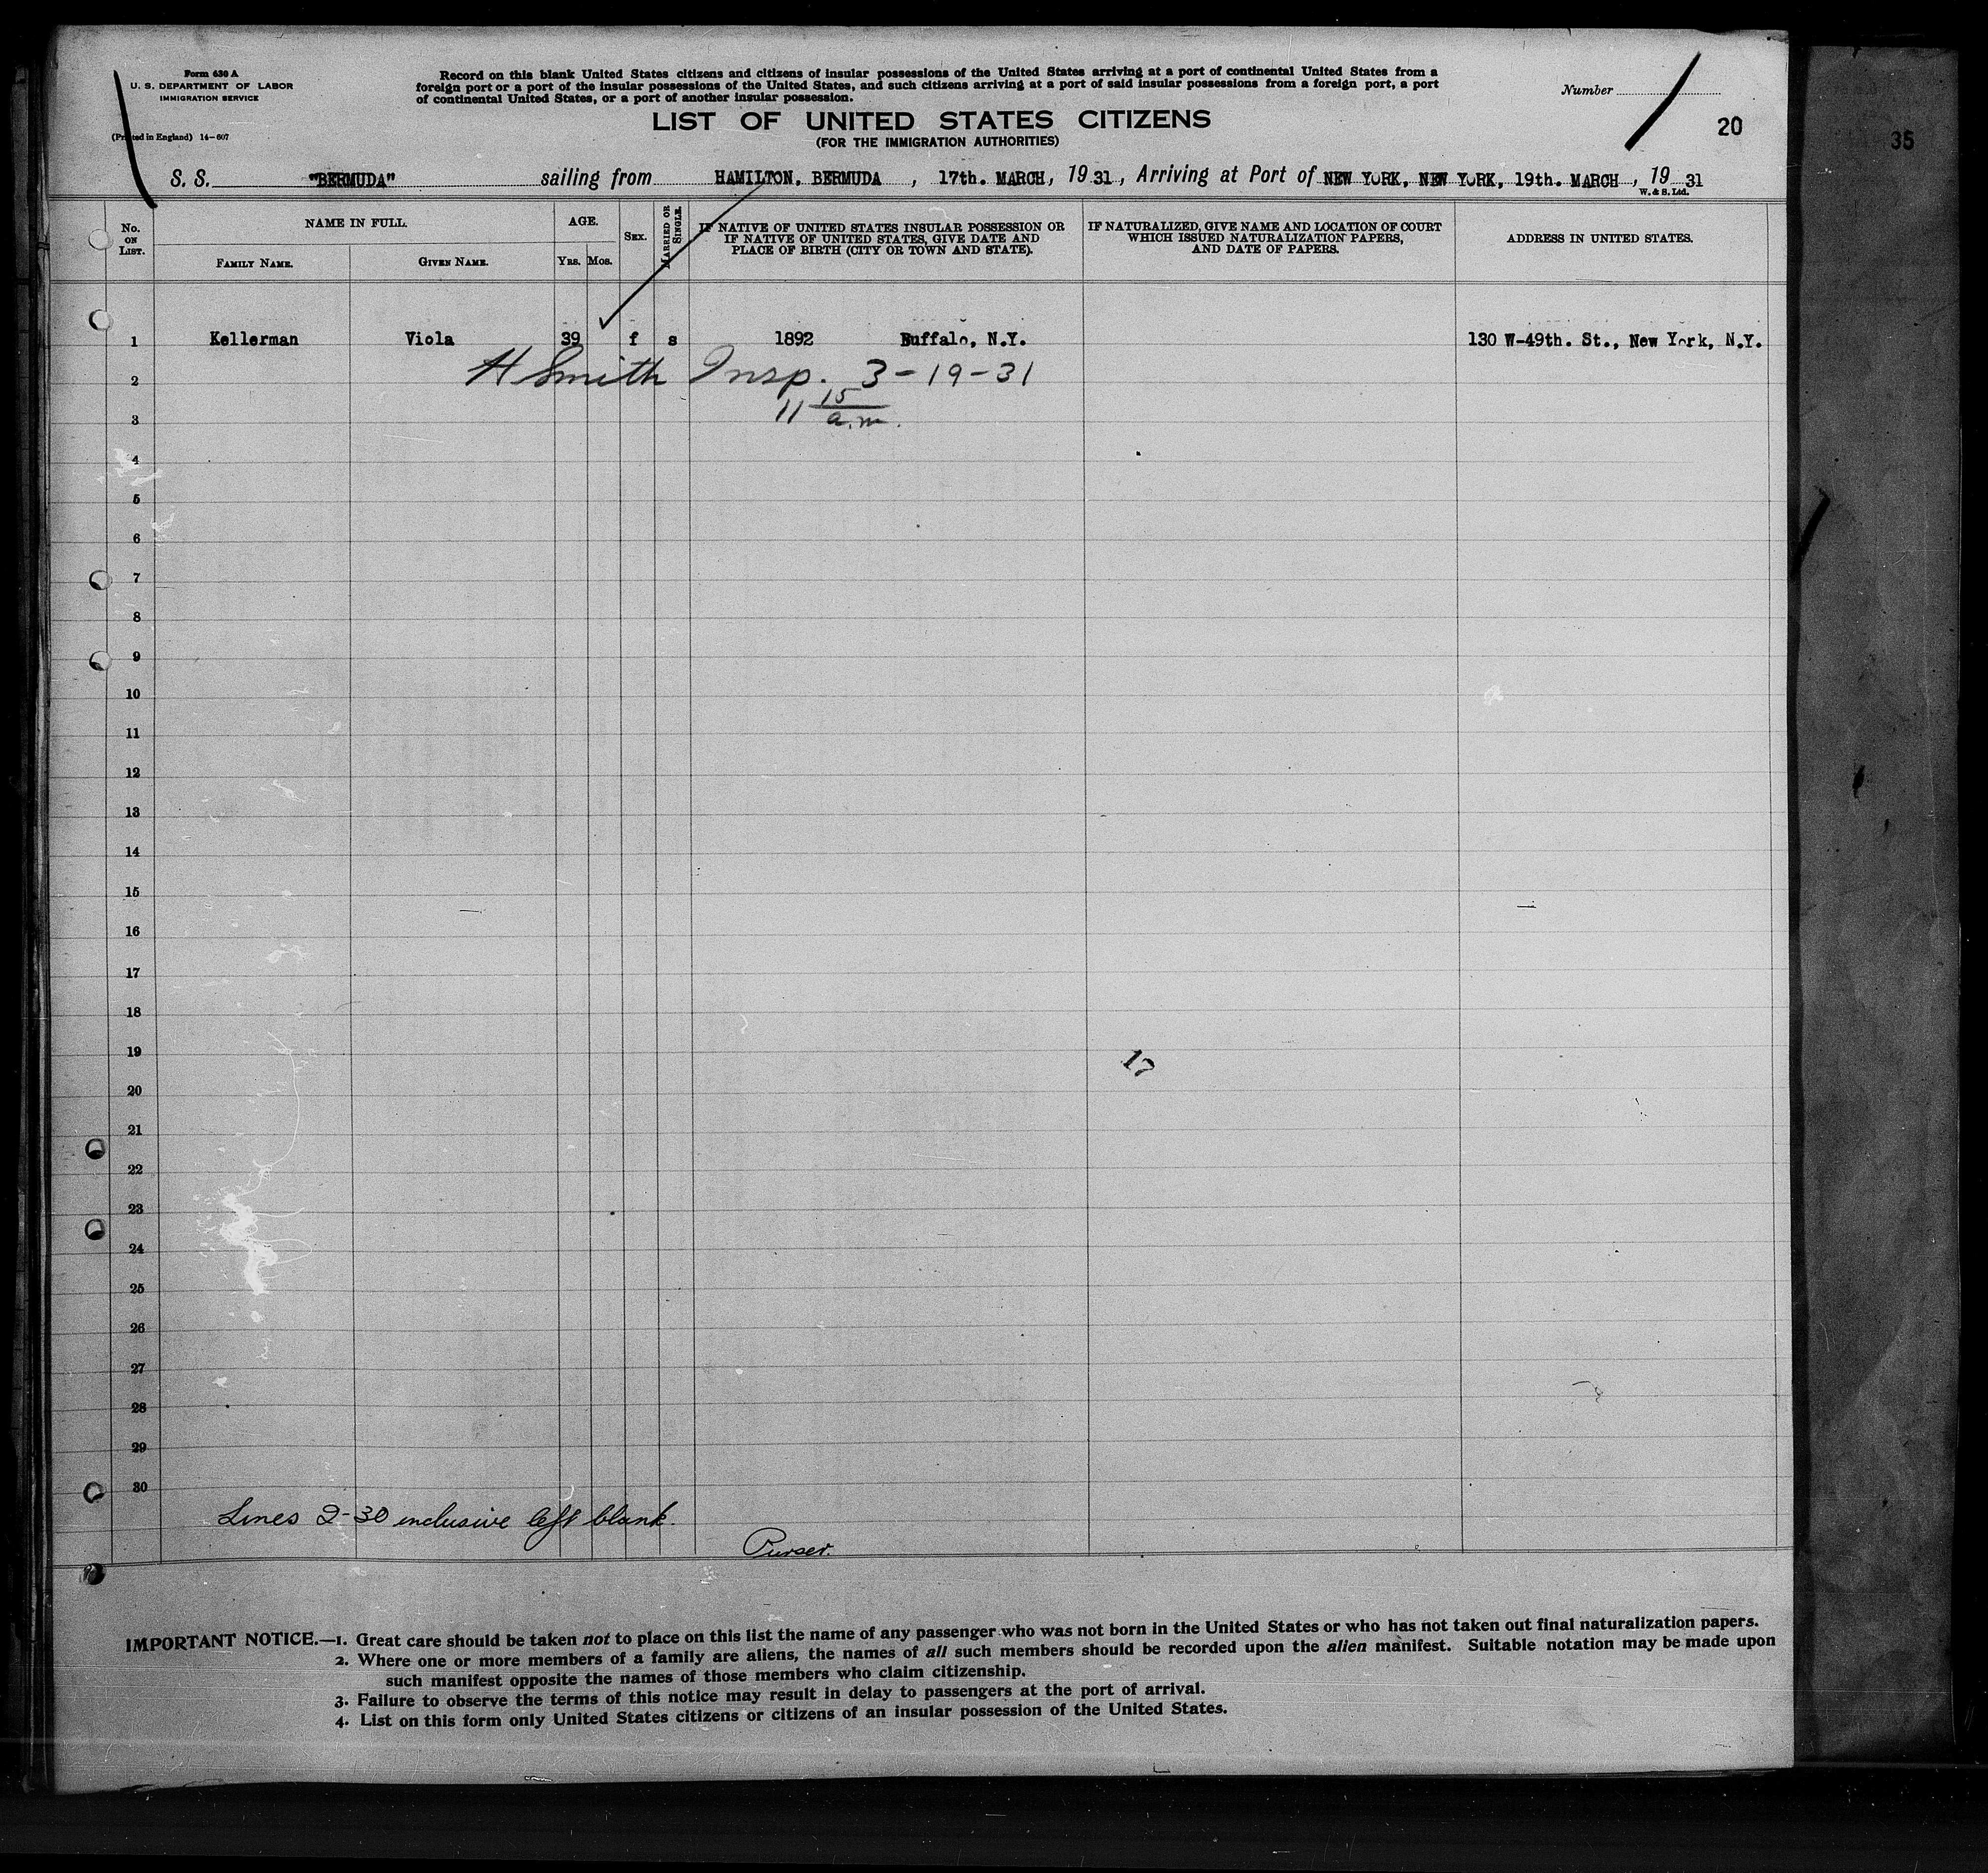 Form 630 A
U. S. DEPARTMENT OF LABOR
IMMIGRATION SERVICE
(Printed in England) 14-607
Record on this blank United States citizens and citizens of insular possessions of the United States arriving at a port of continental United States from a
foreign port or a port of the insular possessions of the United States, and such citizens arriving at a port of said insular possessions from a foreign port, a port
of continental United States, or a port of another insular possession.
LIST OF UNITED STATES CITIZENS
(FOR THE IMMIGRATION AUTHORITIES)
Number
20
35
S. S. "BERMUDA" sailing from HAMILTON, BERMUDA, 17th. MARCH, 19 31, Arriving at Port of NEW YORK, NEW YORK, 19th. MARCH, 19 31
W. & S. Ltd.
No. ON LIST.
NAME IN FULL.
FAMILY NAME.
GIVEN NAME.
AGE.
YRS. MOS.
SEX.
MARRIED OR SINGLE.
IF NATIVE OF UNITED STATES INSULAR POSSESSION OR
IF NATIVE OF UNITED STATES, GIVE DATE AND
PLACE OF BIRTH (CITY OR TOWN AND STATE).
IF NATURALIZED, GIVE NAME AND LOCATION OF COURT
WHICH ISSUED NATURALIZATION PAPERS,
AND DATE OF PAPERS.
ADDRESS IN UNITED STATES.
1 Kellerman Viola 39 f s 1892 Buffalo, N.Y. 130 W-49th. St., New York, N.Y.
2 H Smith Insp. 3-19-31
3 11 15 a.m.
4
5
6
7
8
9
10
11
12
13
14
15
16
17
18
19
17
20
21
22
23
24
25
26
27
28
29
30
Lines 2-30 inclusive left blank.
Purser.
IMPORTANT NOTICE.—1. Great care should be taken not to place on this list the name of any passenger who was not born in the United States or who has not taken out final naturalization papers.
2. Where one or more members of a family are aliens, the names of all such members should be recorded upon the alien manifest. Suitable notation may be made upon
such manifest opposite the names of those members who claim citizenship.
3. Failure to observe the terms of this notice may result in delay to passengers at the port of arrival.
4. List on this form only United States citizens or citizens of an insular possession of the United States.